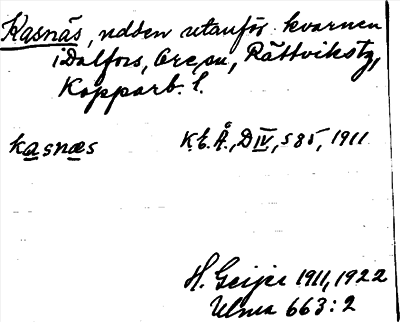 Kasnäs, udden utanför kvarnen
i Dalfors, Ore sn, Rättvikstg,
Kopparb. l.
kasnæs K.E.Å., D IV, s 85, 1911
H. Geijer 1911, 1922
Ulma 663:2